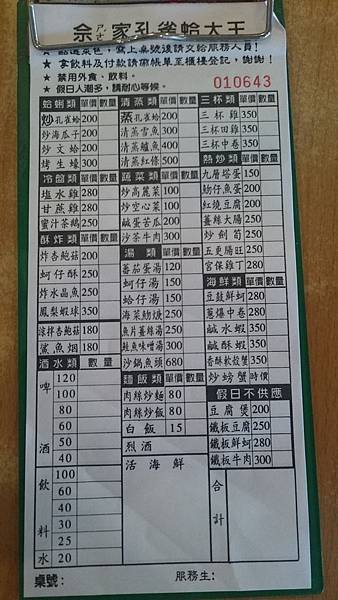 佘家孔雀蛤大王
★ 點選菜色，寫上桌號後請交給服務人員！
★ 拿飲料及付款請備帳單至櫃檯登記，謝謝！
★ 禁用外食、飲料。
★ 假日人潮多，請耐心等候。
010643
蛤蜊類 單價 數量
炒孔雀蛤 200
炒海瓜子 200
炒文蛤 200
烤生蠔 300
冷盤類 單價 數量
塩水雞 280
甘蔗雞 280
蜜汁茶鵝 250
酥炸類 單價 數量
炸杏鮑菇 200
蚵仔酥 250
炸水晶魚 250
鳳梨蝦球 350
涼拌杏鮑菇 180
鯊魚烟 180
酒水類 數量
啤酒
120
100
80
60
50
40
飲料水
100
60
40
30
25
20
清蒸類 單價 數量
蒸孔雀蛤 200
清蒸雪魚 300
清蒸鱸魚 400
清蒸紅條 500
蔬菜類 單價 數量
炒高麗菜 100
炒空心菜 100
鹹蛋苦瓜 200
沙茶牛肉 300
湯類 單價 數量
番茄蛋湯 120
蚵仔湯 150
蛤仔湯 150
海菜魩焿 250
魚片薑絲湯 250
鮭魚味噌湯 300
沙鍋魚頭 680
麵飯類 單價 數量
肉絲炒麵 80
肉絲炒飯 80
白飯 15
烈酒
活海鮮
三杯類 單價 數量
三杯雞 350
三杯田雞 350
三杯中卷 350
熱炒類 單價 數量
九層塔蛋 150
魩仔魚蛋 200
紅燒豆腐 200
薑絲大腸 250
炒劍筍 250
五更腸旺 250
宮保雞丁 280
海鮮類 單價 數量
豆豉鮮蚵 280
蔥爆中卷 280
鹹水蝦 350
鹹酥蝦 350
香酥軟殼蟹 350
炒螃蟹 時價
假日不供應
豆腐煲 200
鐵板豆腐 250
鐵板鮮蚵 280
鐵板牛肉 300
合計
桌號：
服務生：